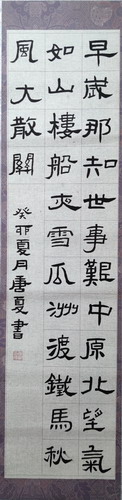 早歲那知世事艱中原北望氣
如山樓船夜雪瓜洲渡鐵馬秋
風大散關
癸卯夏月唐夏書